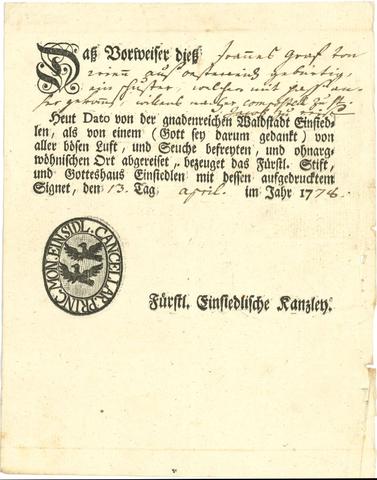 Daß Vorweiser dieß Joannes Graf von
wienn aus oesterreich gebürtig,
ein schuster, welcher mit
willens nacher compostell zu
Heut Dato von der gnadenreichen Waldstadt Einsied-
len, als von einem (Gott sey darum gedankt) von
aller bösen Luft, und Seuche befreyten, und ohnarg-
wöhnischen Ort abgereiset, bezeuget das Fürstl. Stift,
und Gotteshaus Einsiedlen mit dessen aufgedrucktem
Signet, den 13. Tag april. im Jahr 1778.
MON. EINSIDL. CANCELLAR. PRINC.
Fürstl. Einsiedlische Kanzley.